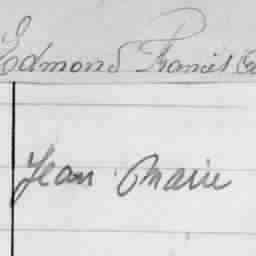 Edmond Francis
Jean Marie